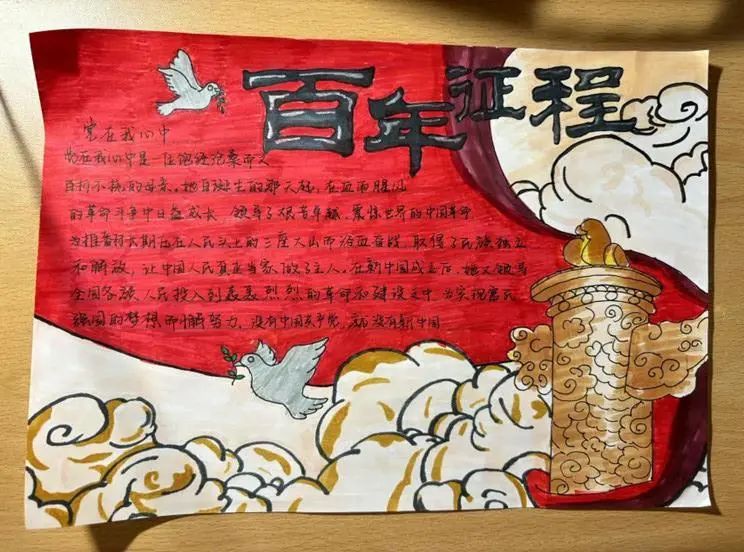 百年征程
党在我心中
党在我心中是一位饱经沧桑而又
百折不挠的母亲。她自诞生的那天起，在血雨腥风
的革命斗争中日益成长，领导了艰苦卓越、震惊世界的中国革命
为推翻长期压在人民头上的三座大山而浴血奋战，取得了民族独立
和解放，让中国人民真正当家做了主人。在新中国成立后，她又领导
全国各族人民投入到轰轰烈烈的革命和建设之中，为实现富民
强国的梦想而不懈努力，没有中国共产党，就没有新中国